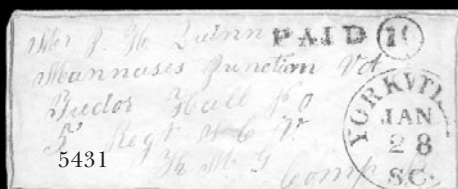 Mr J. H. Quinn
PAID 10
Mannases Junction Va
Tudor Hall P O
5th Regt S C V
YORKVILLE
JAN
28
SC.
5431
Comp